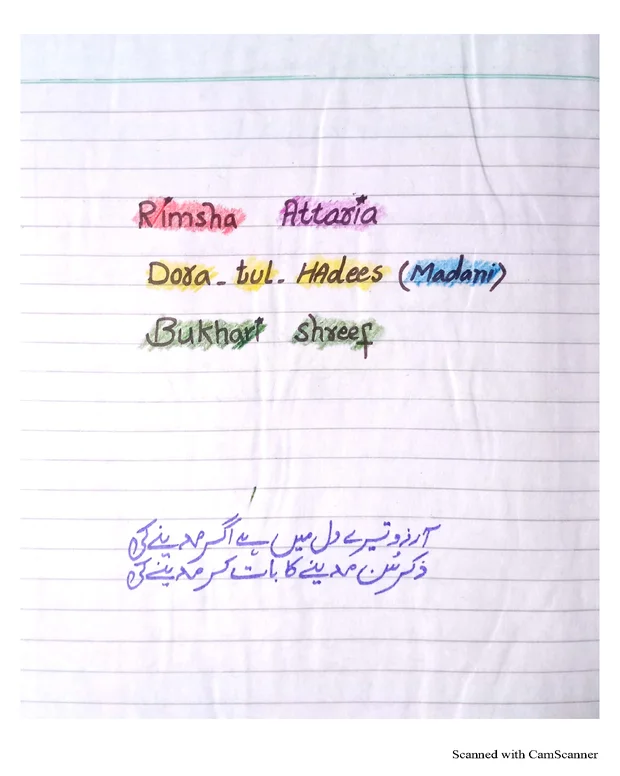 Rimsha Attaria
Dora - tul - HAdees (Madani)
Bukhari shreef
آرزو تیرے دل میں ہے اگر مدینے کی
ذکر سُن مدینے کا بات کر مدینے کی
Scanned with CamScanner